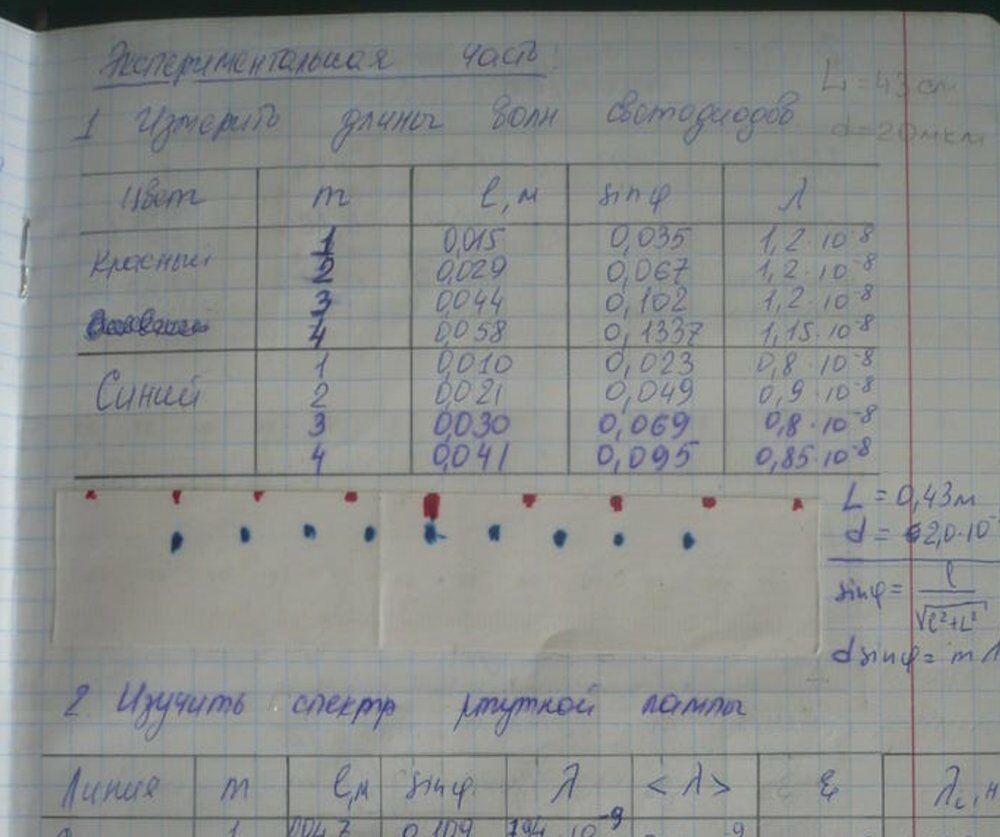 Экспериментальная часть:
L = 43 см
1 Измерить длины волн светодиодов
d = 20 мкм
Цвет m l, м sin φ λ
Красный 1 0,015 0,035 1,2 · 10⁻⁸
2 0,029 0,067 1,2 · 10⁻⁸
3 0,044 0,102 1,2 · 10⁻⁸
4 0,058 0,1337 1,15 · 10⁻⁸
Синий 1 0,010 0,023 0,8 · 10⁻⁸
2 0,021 0,049 0,9 · 10⁻⁸
3 0,030 0,069 0,8 · 10⁻⁸
4 0,041 0,095 0,85 · 10⁻⁸
L = 0,43 м
d = 2,0 · 10⁻
sin φ = l / √l² + L²
d sin φ = m λ
2 Изучить спектр ртутной лампы
Линия m l, м sin φ λ < λ > ε
1 0,109